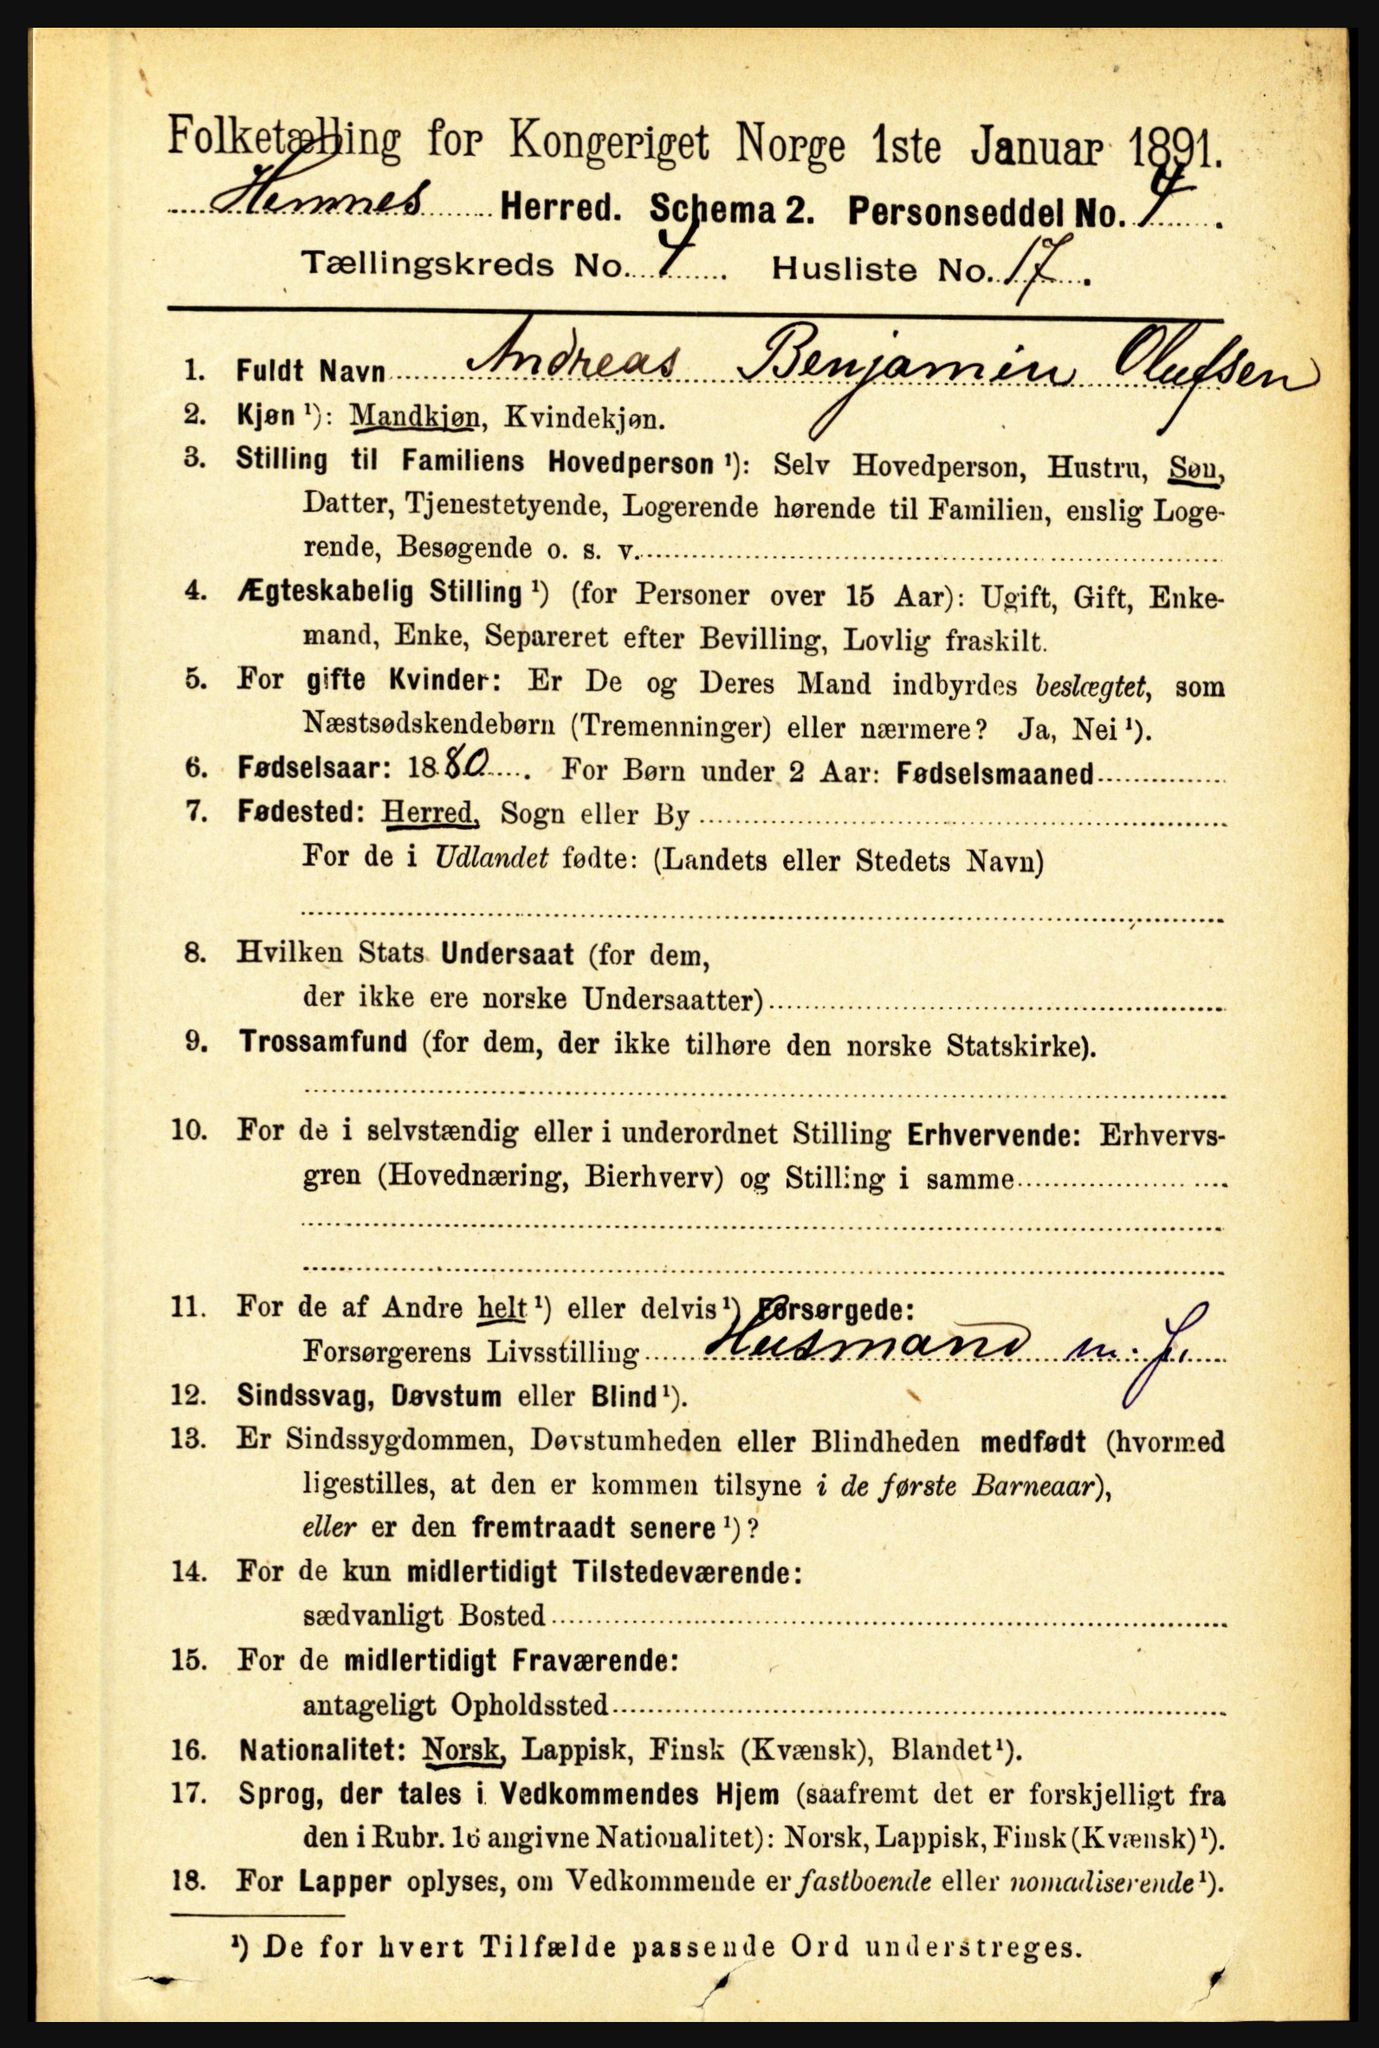 Folketælling for Kongeriget Norge 1ste Januar 1891.
Hemnes Herred. Schema 2. Personseddel No. 4.
Tællingskreds No. 7. Husliste No. 17.
1. Fuldt Navn Andreas Benjamin Olufsen
2. Kjøn ¹): Mandkjøn, Kvindekjøn.
3. Stilling til Familiens Hovedperson ¹): Selv Hovedperson, Hustru, Søn,
Datter, Tjenestetyende, Logerende hørende til Familien, enslig Loge-
rende, Besøgende o. s. v.
4. Ægteskabelig Stilling ¹) (for Personer over 15 Aar): Ugift, Gift, Enke-
mand, Enke, Separeret efter Bevilling, Lovlig fraskilt.
5. For gifte Kvinder: Er De og Deres Mand indbyrdes beslægtet, som
Næstsødskendebørn (Tremenninger) eller nærmere? Ja, Nei ¹).
6. Fødselsaar: 1880. For Børn under 2 Aar: Fødselsmaaned
7. Fødested: Herred, Sogn eller By
For de i Udlandet fødte: (Landets eller Stedets Navn)
8. Hvilken Stats Undersaat (for dem,
der ikke ere norske Undersaatter)
9. Trossamfund (for dem, der ikke tilhøre den norske Statskirke).
10. For de i selvstændig eller i underordnet Stilling Erhvervende: Erhvervs-
gren (Hovednæring, Bierhverv) og Stilling i samme
11. For de af Andre helt ¹) eller delvis ¹) Forsørgede:
Forsørgerens Livsstilling Husmand m. J.
12. Sindssvag, Døvstum eller Blind ¹).
13. Er Sindssygdommen, Døvstumheden eller Blindheden medfødt (hvormed
ligestilles, at den er kommen tilsyne i de første Barneaar),
eller er den fremtraadt senere ¹)?
14. For de kun midlertidigt Tilstedeværende:
sædvanligt Bosted
15. For de midlertidigt Fraværende:
antageligt Opholdssted
16. Nationalitet: Norsk, Lappisk, Finsk (Kvænsk), Blandet ¹).
17. Sprog, der tales i Vedkommendes Hjem (saafremt det er forskjelligt fra
den i Rubr. 16 angivne Nationalitet): Norsk, Lappisk, Finsk (Kvænsk) ¹).
18. For Lapper oplyses, om Vedkommende er fastboende eller nomadiserende ¹).
¹) De for hvert Tilfælde passende Ord understreges.